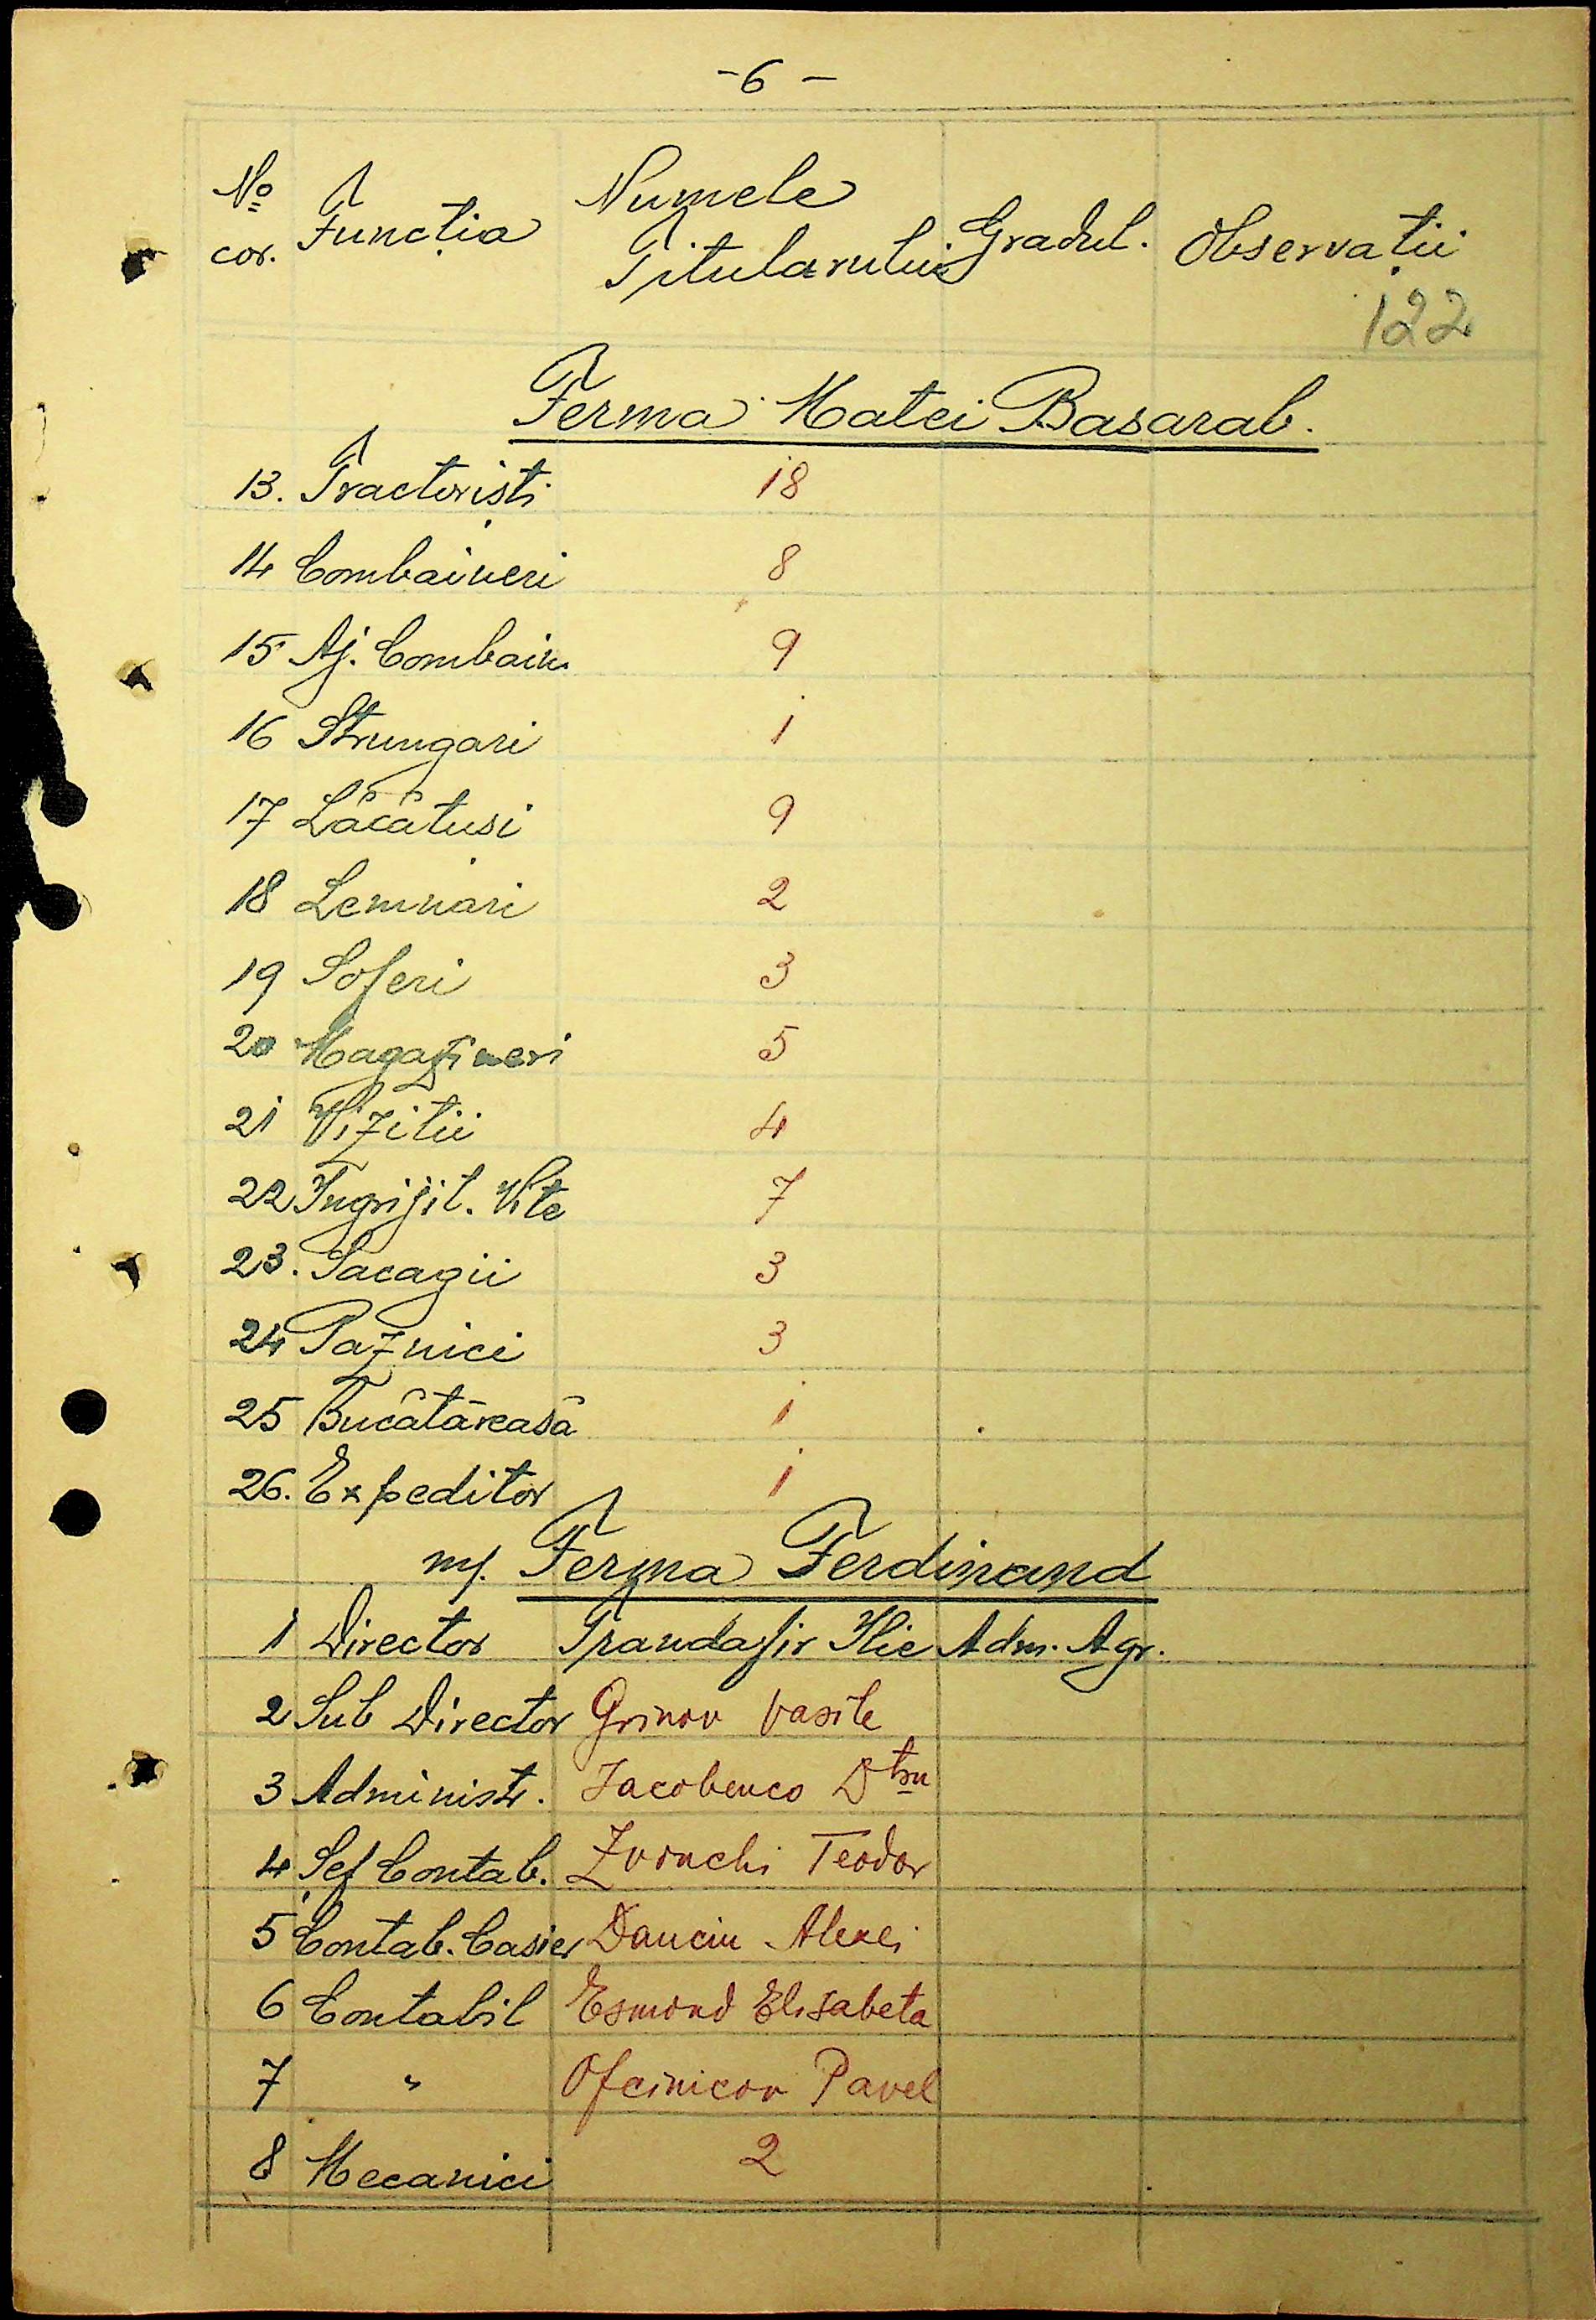 -6-
No cor. Funcția Numele Titularului Gradul. Observații
122
Ferma Matei Basarab.
13. Tractoriști 18
14 Combaineri 8
15 Aj. Combain. 9
16 Strungari 1
17 Lăcătuși 9
18 Lemnari 2
19 Soferi 3
20 Magazineri 5
21 Vizitii 4
22 Ingrijit. Vite 7
23. Sacagii 3
24 Paznici 3
25 Bucătăreasă 1
26. Expeditor 1
m/. Ferma Ferdinand
1 Director Trandafir Ilie Adm. Agr.
2 Sub Director Grinov Vasile
3 Administr. Iacobenco Dtru
4 Șef Contab. Teodor
5 Contab. Casier Danciu Alexei
6 Contabil Esmond Elisabeta
7 " Ofcinicov Pavel
8 Mecanici 2